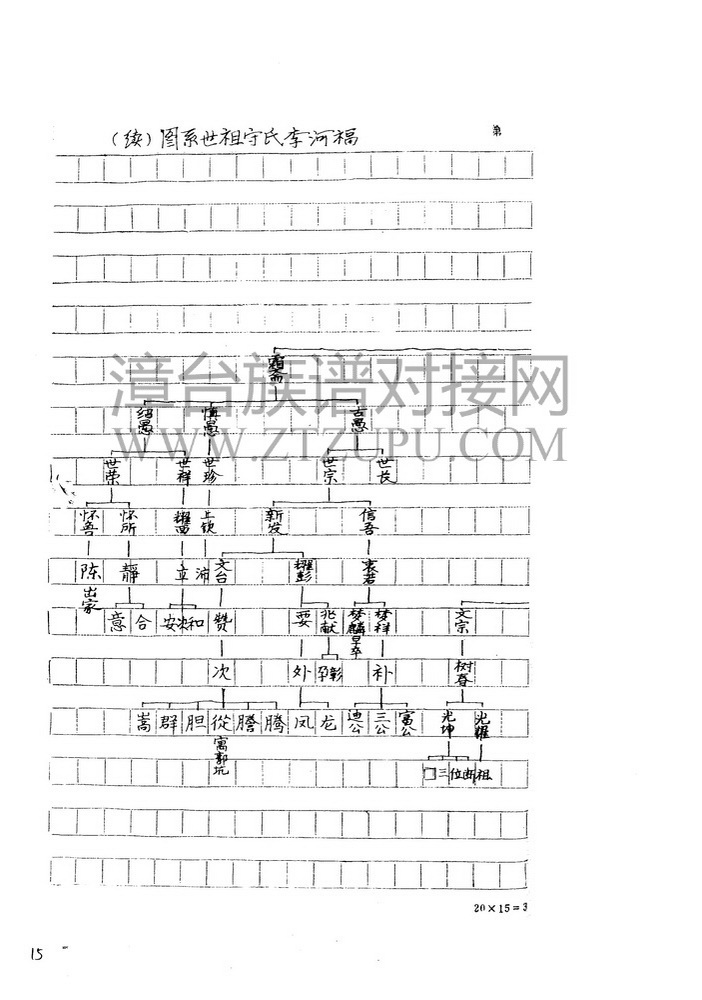 （续）图系世祖守氏李河福
第
霜斋
绍愚 慎愚 古愚
世荣 世祥 世珍 世宗 世长
怀吾 怀所 上钦 新发 信吾
陈 靜 立 沛 文台 耀彭 衷若
出家
意 合 和 赞 要 兆献 梦麟 梦祥 文宗
早卒
次 外 孕彰 补 树春
嵩 群 胆 從 謄 腾 凤 龙 迪公 三公 富公 光坤 光耀
寓郭坑
三位断祖
20×15=3
15
漳台族谱对接网
WWW.ZTZUPU.COM